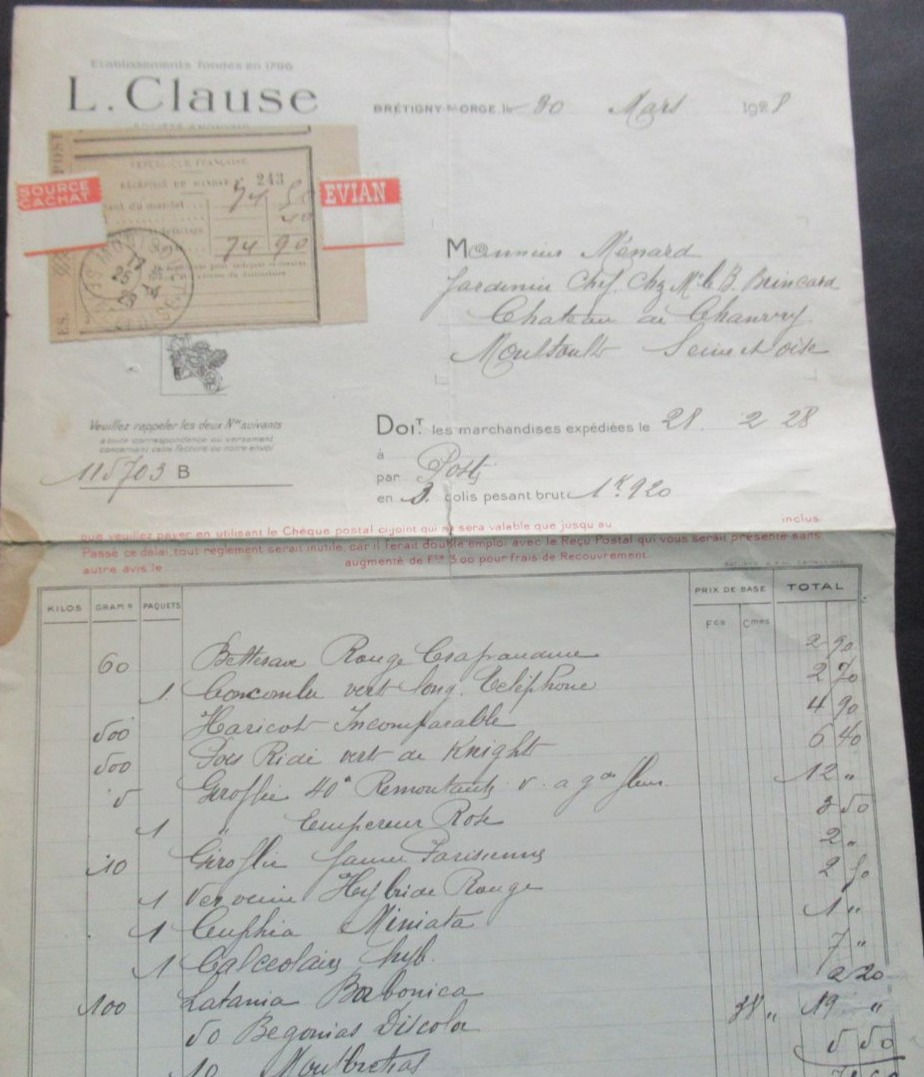 Etablissements fondés en 1796
L. Clause
BRÉTIGNY-S-ORGE, le 30 Mars 1928
SOURCE CACHAT
EVIAN
RÉPUBLIQUE FRANÇAISE
RÉCÉPISSÉ DE MANDAT 243
du mandat 74 50
40
74 90
Monsieur Ménard
Jardinier Chef. Chz Mr le B. Brincard
Chateau de Chanvry
Moultsoult Seine et Oise
Veuillez rappeler les deux Nos suivants
à toute correspondance ou versement
concernant cette facture ou notre envoi
115703 B
DOIT les marchandises expédiées le 28 . 2 28
à
par Poste
en 3 colis pesant brut 1K.920
que veuillez payer en utilisant le Chèque postal ci-joint qui ne sera valable que jusqu'au inclus
Passé ce délai, tout règlement serait inutile, car il ferait double emploi avec le Reçu Postal qui vous serait présenté sans
autre avis le augmenté de Frs 3.00 pour frais de Recouvrement.
KILOS GRAMs PAQUETS PRIX DE BASE TOTAL
Fcs Cmes
60 Betterave Rouge Crapaudine 2 90
1 Concombre vert long Téléphone 2 70
500 Haricot Incomparable 4 90
500 Pois Ridé vert de Knight 6 40
5 Giroflée 40e Remontante v. a gdes fleurs 12 "
1 " Empereur Rose 3 50
10 Giroflée Jaune Parisienne 2 "
1 Verveine Hybride Rouge 2 50
1 Cuphea Miniata 1 "
1 Calceolaire hyb. 7 "
2 20
100 Latania Borbonica 38 " 19 "
50 Begonias Discolor 5 50
10 Montbretias